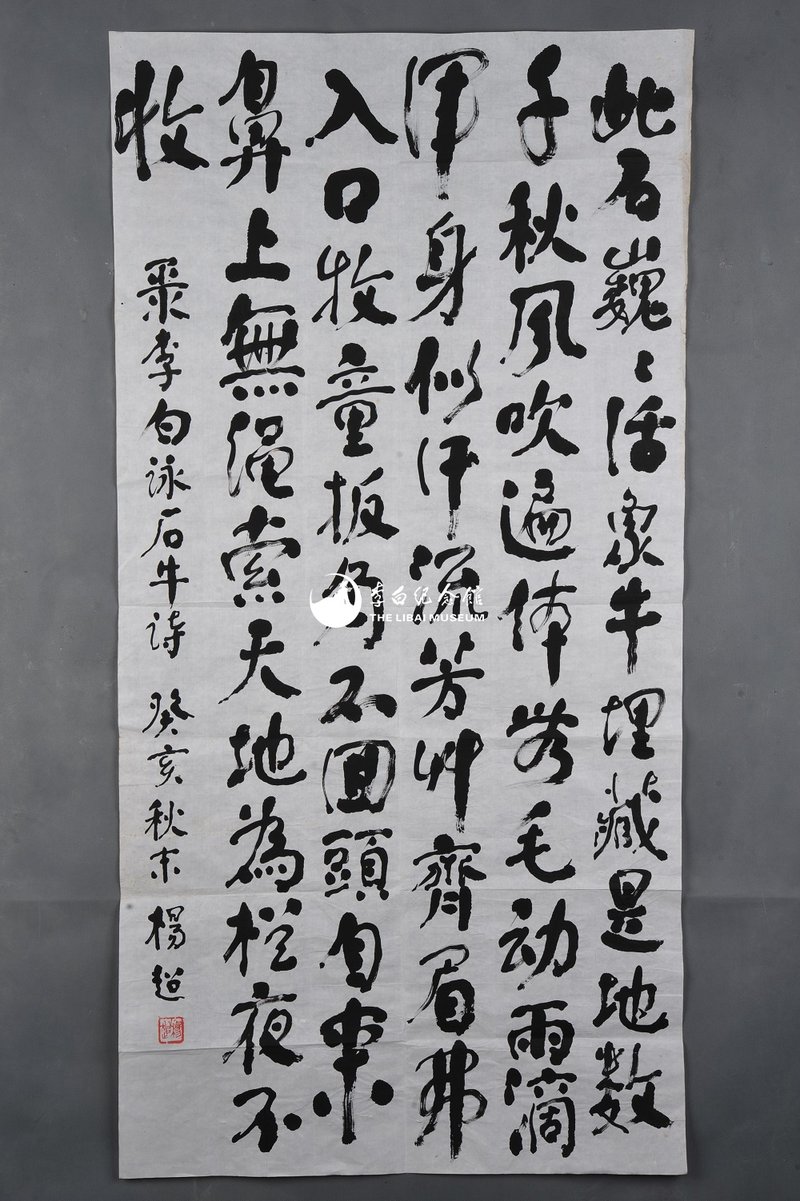 此石巍〻活象牛埋藏是地数
千秋风吹遍体无毛动雨滴
浑身似汗流芳艸齊眉弗
入口牧童扳角不囬頭自来
鼻上無绳索天地為栏夜不
收
李白詠石牛诗 癸亥秋末 楊超
李白纪念館
THE LIBAI MUSEUM